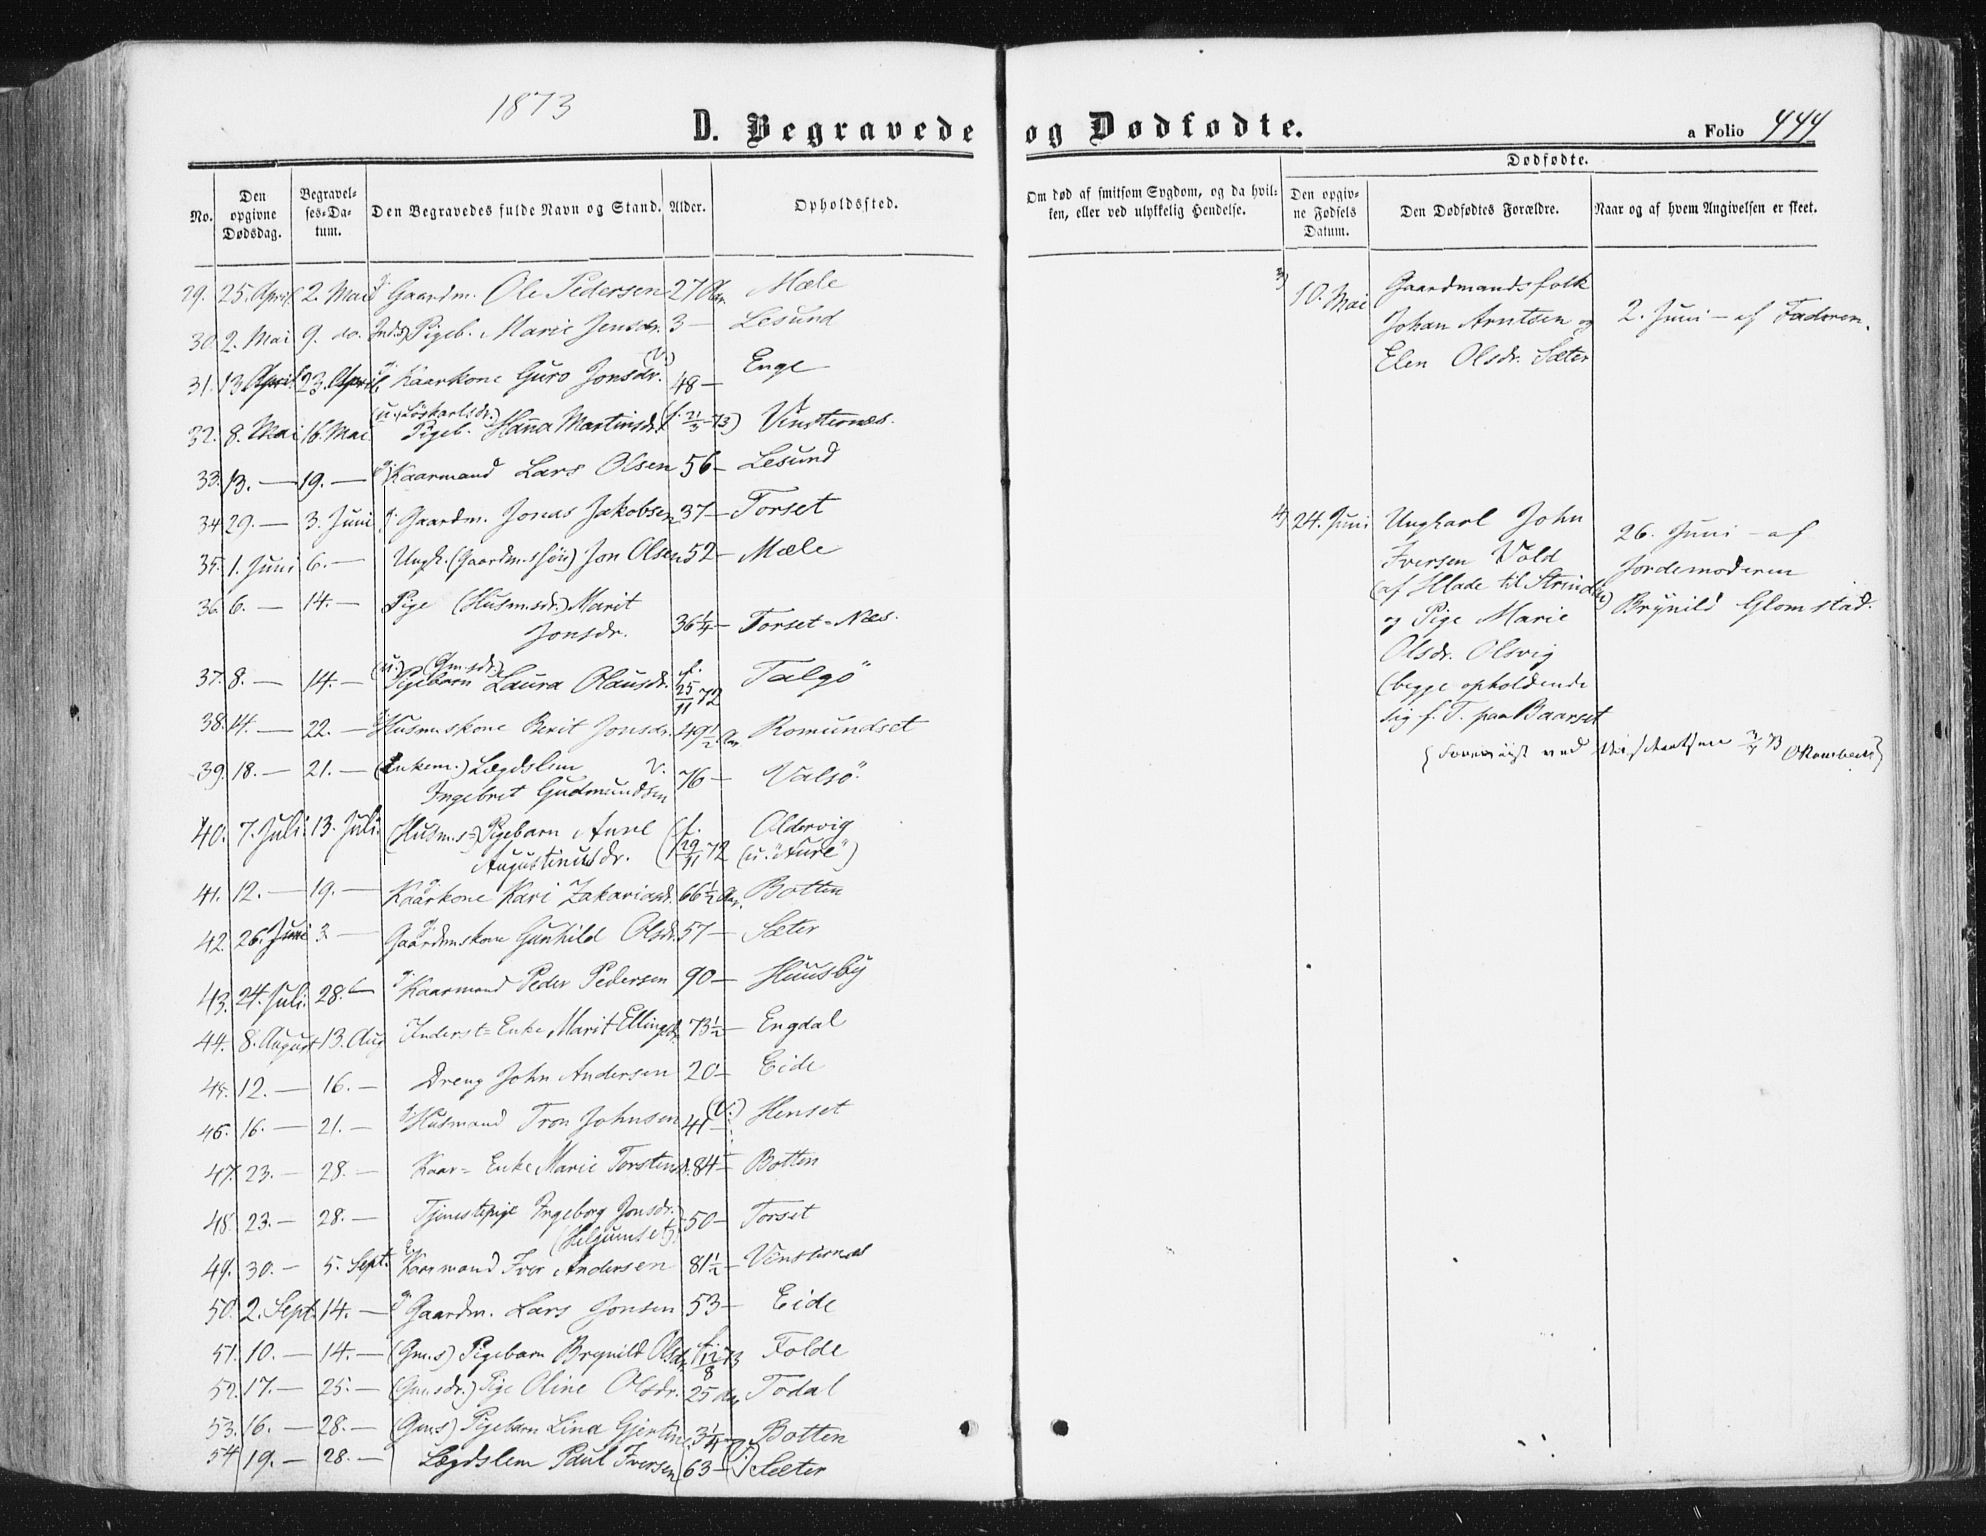 1873
D. Begravede og Dødfødte.
a Folio 444
Dødfødte.
No.
Den opgivne Dødsdag.
Begravelses-Datum.
Den Begravedes fulde Navn og Stand.
Alder.
Opholdssted.
Om død af smitsom Sygdom, og da hvilken, eller ved ulykkelig Hendelse.
Den opgivne Fødsels Datum.
Den Dødfødtes Forældre.
Naar og af hvem Angivelsen er skeet.
29. 25. April 2. Mai Gaardm. Ole Pedersen 27 Aar Mæle
30. 2. Mai 9. do. Inds. Pigeb. Marie Jensdr. 3 — Lesund
31. 13. April 23. April Kaarkone Guro Jonsdr. (V.) 48 — Enge
32. 8. Mai 16. Mai (u. Løskarlsdr.) Pigeb. Hana Martinsdr. (f. 21/3 73) Vinsternæs.
33. 13. — 19. — Kaarmand Lars Olsen 56 — Lesund
34. 29. — 3. Juni Gaardm. Jonas Jakobsen 37 — Torset
35. 1. Juni 6. — Ungk. (Gaardm. søn) Jon Olsen 52 — Mæle
36. 6. — 14. — Pige (Husm.sdr.) Marit
Jonsdr. 36 1/4 — Torset-Næs.
37. 8. — 14. — (u.) (Gm.sdr.) Pigebarn Laura Olausdr. f. 25/11 72 Talgö
38. 14. — 22. — Husmskone Berit Jonsdr. 49 1/2 Aar Romundset
39. 18. — 21. — (Enkem.) Lægdslem V.
Ingebret Gudmundsen 76 — Valsö.
40. 7. Juli 13. Juli (Husm.s) Pigebarn Anne
Augustinusdr. (f. 29/11 72 Oldervig (u. "Aure")
41. 12. — 19. — Kaarkone Kari Zakariasdr. 66 1/2 Aar. Botten
42. 26. Juni 3. — Gaardmskone Gunhild Olsdr. 57 — Sæter
43. 24. Juli. 28. — Kaarmand Peder Pedersen 90 — Huusby
44. 8. August 13. Aug Inderst-Enke Marit Ellingsdr. 73 1/2 — Engdal
45. 12. — 16. — Dreng John Andersen 20 — Eide
46. 16. — 21. — Husmand Tron Johnsen 41 (V.) Henset
47. 23. — 28. — Kaar-Enke Marie Torstensd. 84 — Botten
48. 23. — 28. — Tjenestepige Ingeborg Jonsdr.
(Helgumset) 50 — Torset
49. 30. — 5. Sept. Kaarmand Iver Andersen 81 1/2 — Vinsternæs
50. 2. Sept. 14. — Gaardm. Lars Jonsen 53 — Eide
51. 10. — 14. — (Gm.s) Pigebarn Brynild Olsdr f. 12/8 73 Folde
52. 17. — 25. — (Gm.sdr.) Pige Oline Olsdr. 25 Aar Todal
53. 16. — 28. — (Gm.s) Pigebarn Lina Gjertine 3 1/4 — Botten
54 19. — 28. — Lægdslem Paul Iversen 63 — (V.) Sæter
3) 10. Mai Gaardmandsfolk
Johan Arntsen og
Elen Olsdr. Sæter
2. Juni — af Faderen.
4) 24. Juni Ungkarl John
Iversen Vold
(af Hlade til Strinden)
og Pige Marie
Olsdr. Olsvig
(begge opholdende
sig f. T. paa Baarset
26. Juni — af
Jordemoderen
Brynild Glomstad.
{Foreviist ved Visitatsen